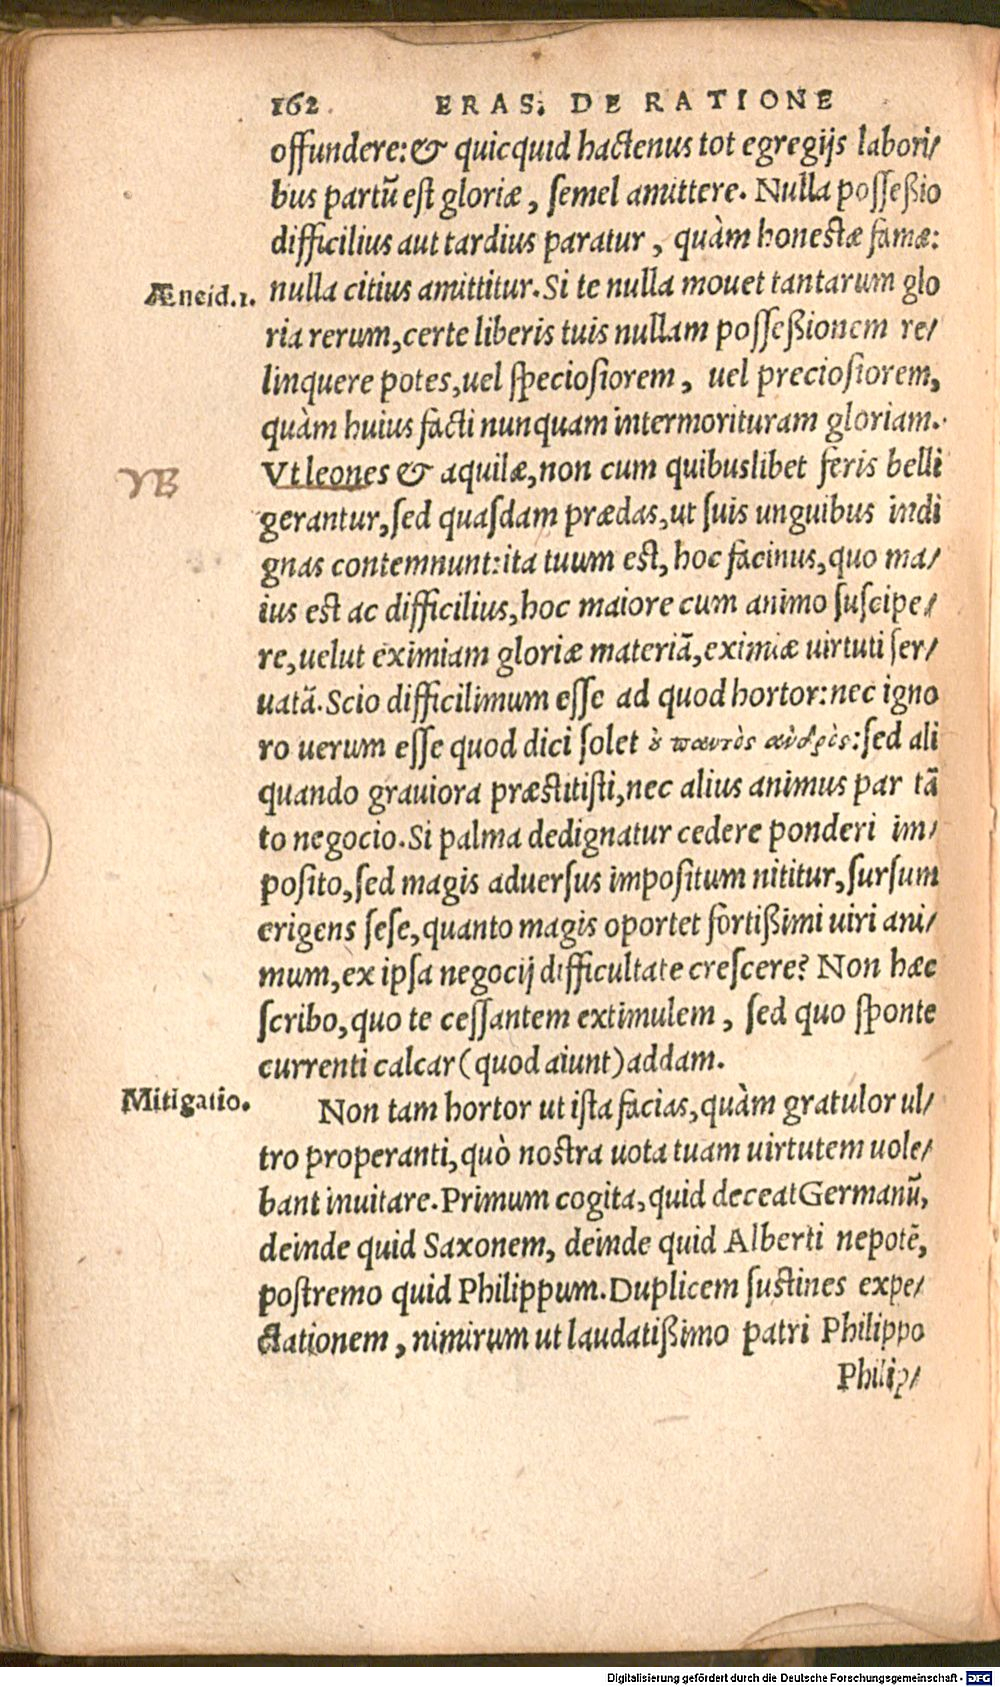 162 ERAS. DE RATIONE
offundere: & quicquid hactenus tot egregijs labori/
bus partū est gloriæ, semel amittere. Nulla posseßio
difficilius aut tardius paratur, quàm honestæ famæ:
Æneid.1. nulla citius amittitur. Si te nulla mouet tantarum glo
ria rerum, certe liberis tuis nullam possessionem re/
linquere potes, uel speciosiorem, uel preciosiorem,
quàm huius facti nunquam intermorituram gloriam.
Vt leones & aquilæ, non cum quibuslibet feris belli
gerantur, sed quasdam prædas, ut suis unguibus indi
gnas contemnunt: ita tuum est, hoc facinus, quo ma/
ius est ac difficilius, hoc maiore cum animo suscipe/
re, uelut eximiam gloriæ materiā, eximiæ uirtuti ser/
uatā. Scio difficilimum esse ad quod hortor: nec igno
ro uerum esse quod dici solet ὀ παντὸς ἀνδρὸς: sed ali
quando grauiora præstitisti, nec alius animus par tā
to negocio. Si palma dedignatur cedere ponderi im/
posito, sed magis aduersus impositum nititur, sursum
erigens sese, quanto magis oportet fortißimi uiri ani/
mum, ex ipsa negocij difficultate crescere? Non hæc
scribo, quo te cessantem extimulem, sed quo sponte
currenti calcar (quod aiunt) addam.
Mitigatio. Non tam hortor ut ista facias, quàm gratulor ul/
tro properanti, quò nostra uota tuam uirtutem uole/
bant inuitare. Primum cogita, quid deceat Germanū,
deinde quid Saxonem, deinde quid Alberti nepotē,
postremo quid Philippum. Duplicem sustines expe/
ctationem, nimirum ut laudatißimo patri Philippo
Philip/
Digitalisierung gefördert durch die Deutsche Forschungsgemeinschaft - DFG